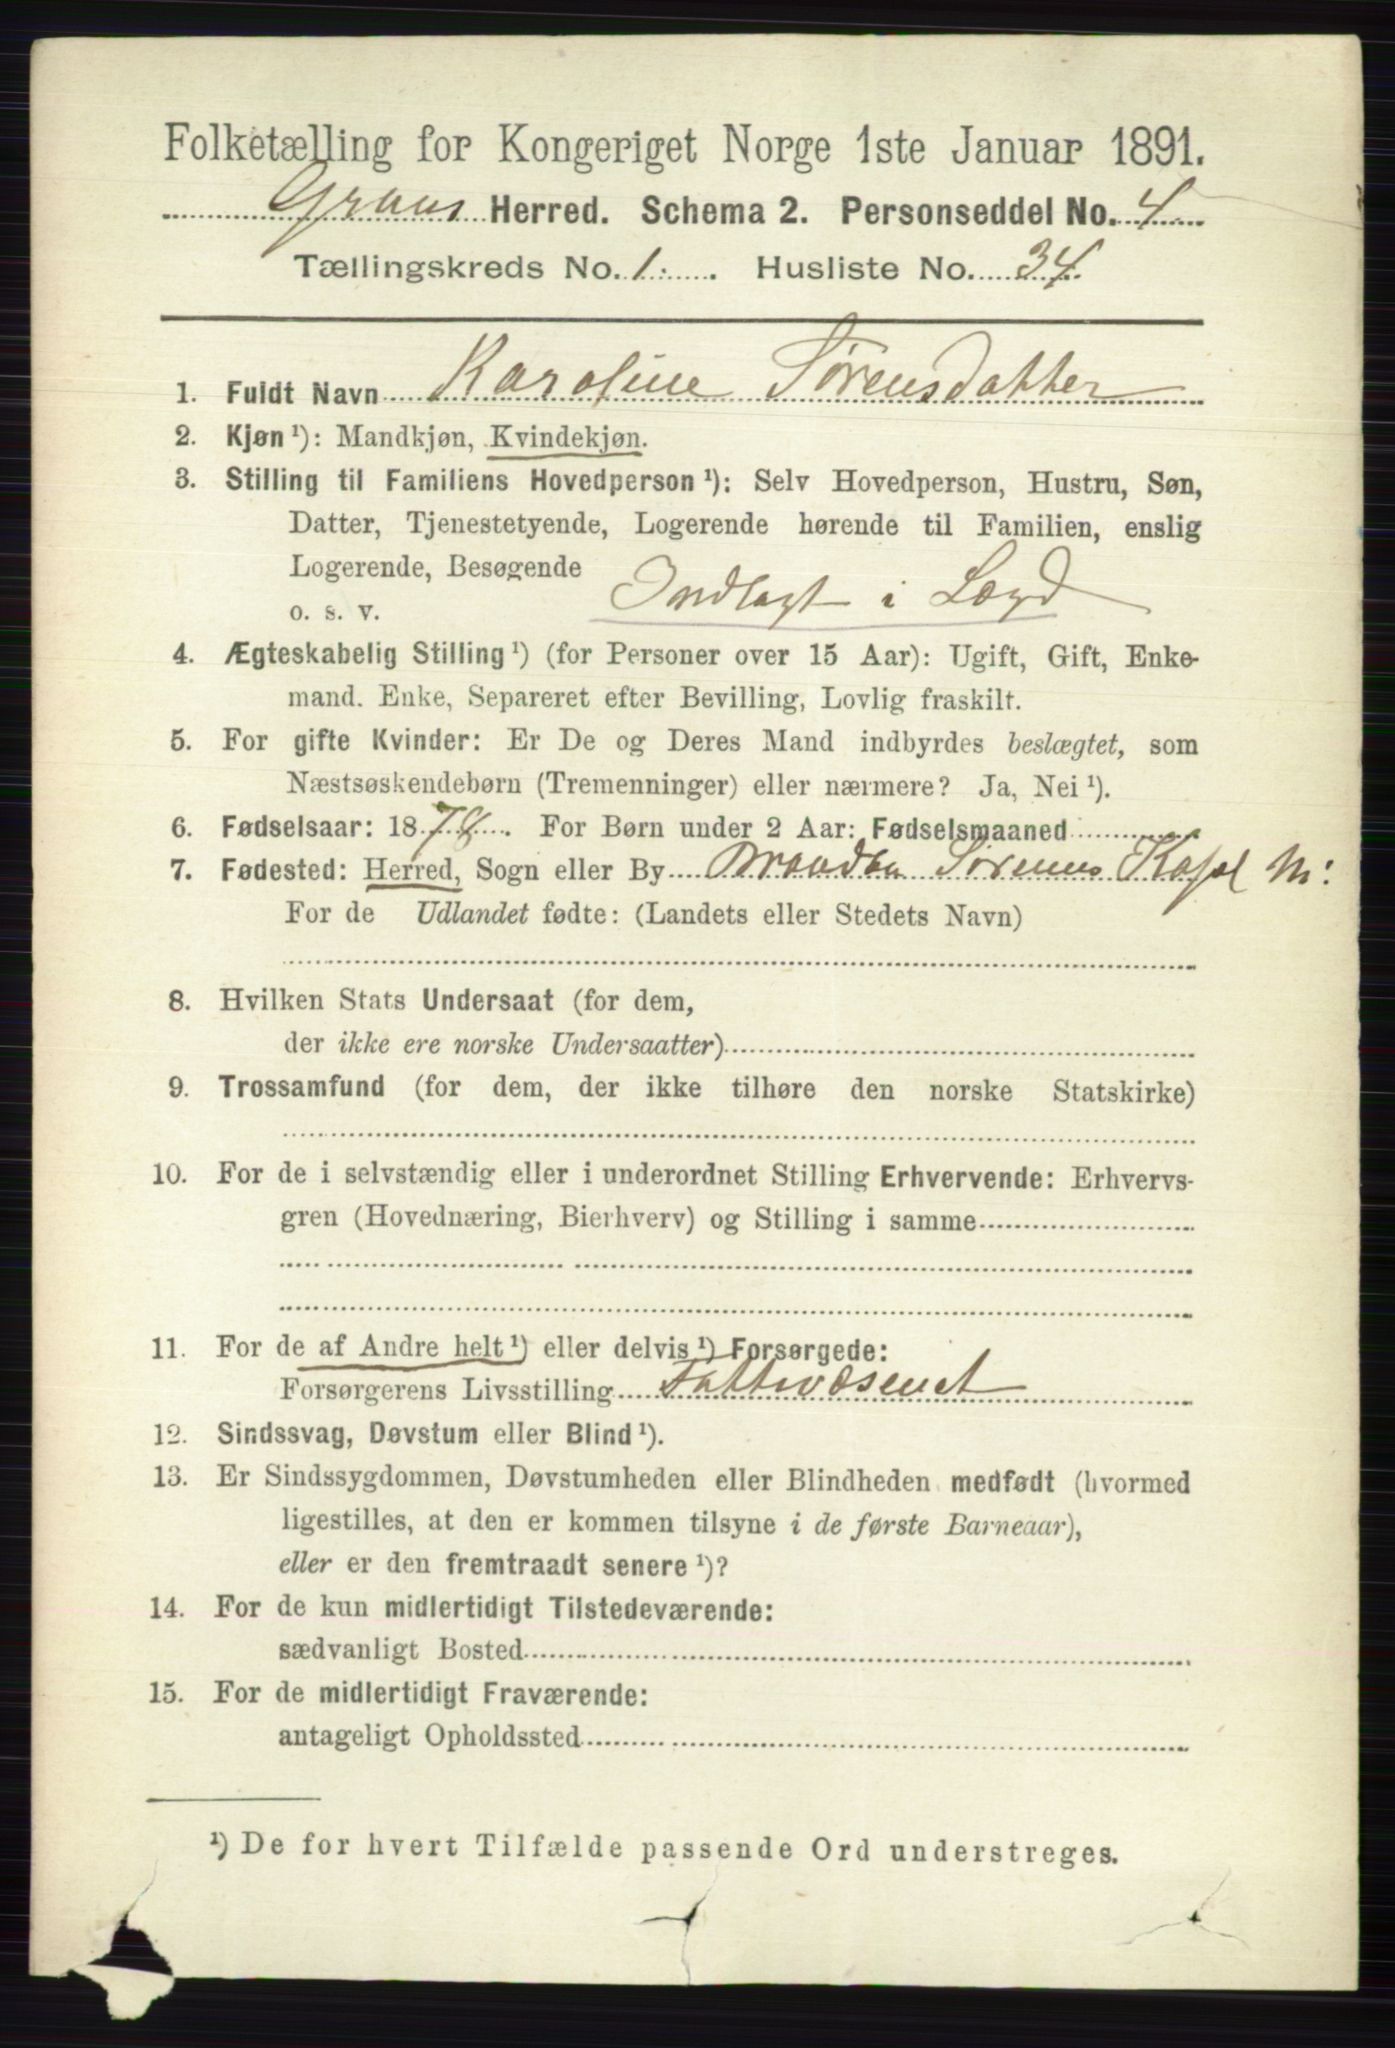 Folketælling for Kongeriget Norge 1ste Januar 1891.
Grans Herred. Schema 2. Personseddel No. 4
Tællingskreds No. 1. Husliste No. 34
1. Fuldt Navn Karoline Sørensdatter
2. Kjøn ¹): Mandkjøn, Kvindekjøn.
3. Stilling til Familiens Hovedperson ¹): Selv Hovedperson, Hustru, Søn,
Datter, Tjenestetyende, Logerende hørende til Familien, enslig
Logerende, Besøgende
o. s. v. Indlagt i Lægd
4. Ægteskabelig Stilling ¹) (for Personer over 15 Aar): Ugift, Gift, Enke-
mand. Enke, Separeret efter Bevilling, Lovlig fraskilt.
5. For gifte Kvinder: Er De og Deres Mand indbyrdes beslægtet, som
Næstsøskendebørn (Tremenninger) eller nærmere? Ja, Nei ¹).
6. Fødselsaar: 1878. For Børn under 2 Aar: Fødselsmaaned
7. Fødested: Herred, Sogn eller By Brandbu
For de Udlandet fødte: (Landets eller Stedets Navn)
8. Hvilken Stats Undersaat (for dem,
der ikke ere norske Undersaatter)
9. Trossamfund (for dem, der ikke tilhøre den norske Statskirke)
10. For de i selvstændig eller i underordnet Stilling Erhvervende: Erhvervs-
gren (Hovednæring, Bierhverv) og Stilling i samme
11. For de af Andre helt ¹) eller delvis ¹) Forsørgede:
Forsørgerens Livsstilling Fattivæsenet
12. Sindssvag, Døvstum eller Blind ¹).
13. Er Sindssygdommen, Døvstumheden eller Blindheden medfødt (hvormed
ligestilles, at den er kommen tilsyne i de første Barneaar),
eller er den fremtraadt senere ¹)?
14. For de kun midlertidigt Tilstedeværende:
sædvanligt Bosted
15. For de midlertidigt Fraværende:
antageligt Opholdssted
¹) De for hvert Tilfælde passende Ord understreges.